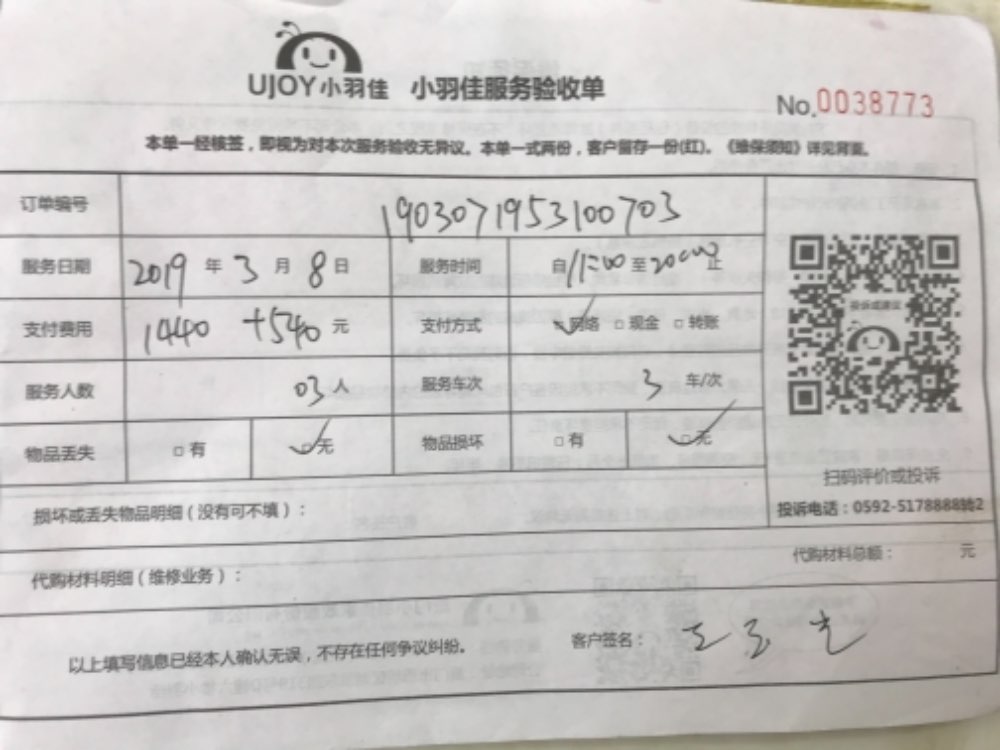 UJOY小羽佳 小羽佳服务验收单
No.0038773
本单一经核签，即视为对本次服务验收无异议。本单一式两份，客户留存一份(红)。《维保须知》详见背面。
订单编号 1903071953100703
服务日期 2019 年 3 月 8 日 服务时间 自 至 止
支付费用 1440 +540 元 支付方式 ☑网络 □现金 □转账
服务人数 03 人 服务车次 3 车/次
物品丢失 □有 ☑无 物品损坏 □有 ☑无
扫码评价或投诉
损坏或丢失物品明细（没有可不填）：
投诉电话：0592-5178888转2
代购材料明细（维修业务）： 代购材料总额： 元
以上填写信息已经本人确认无误，不存在任何争议纠纷。 客户签名：